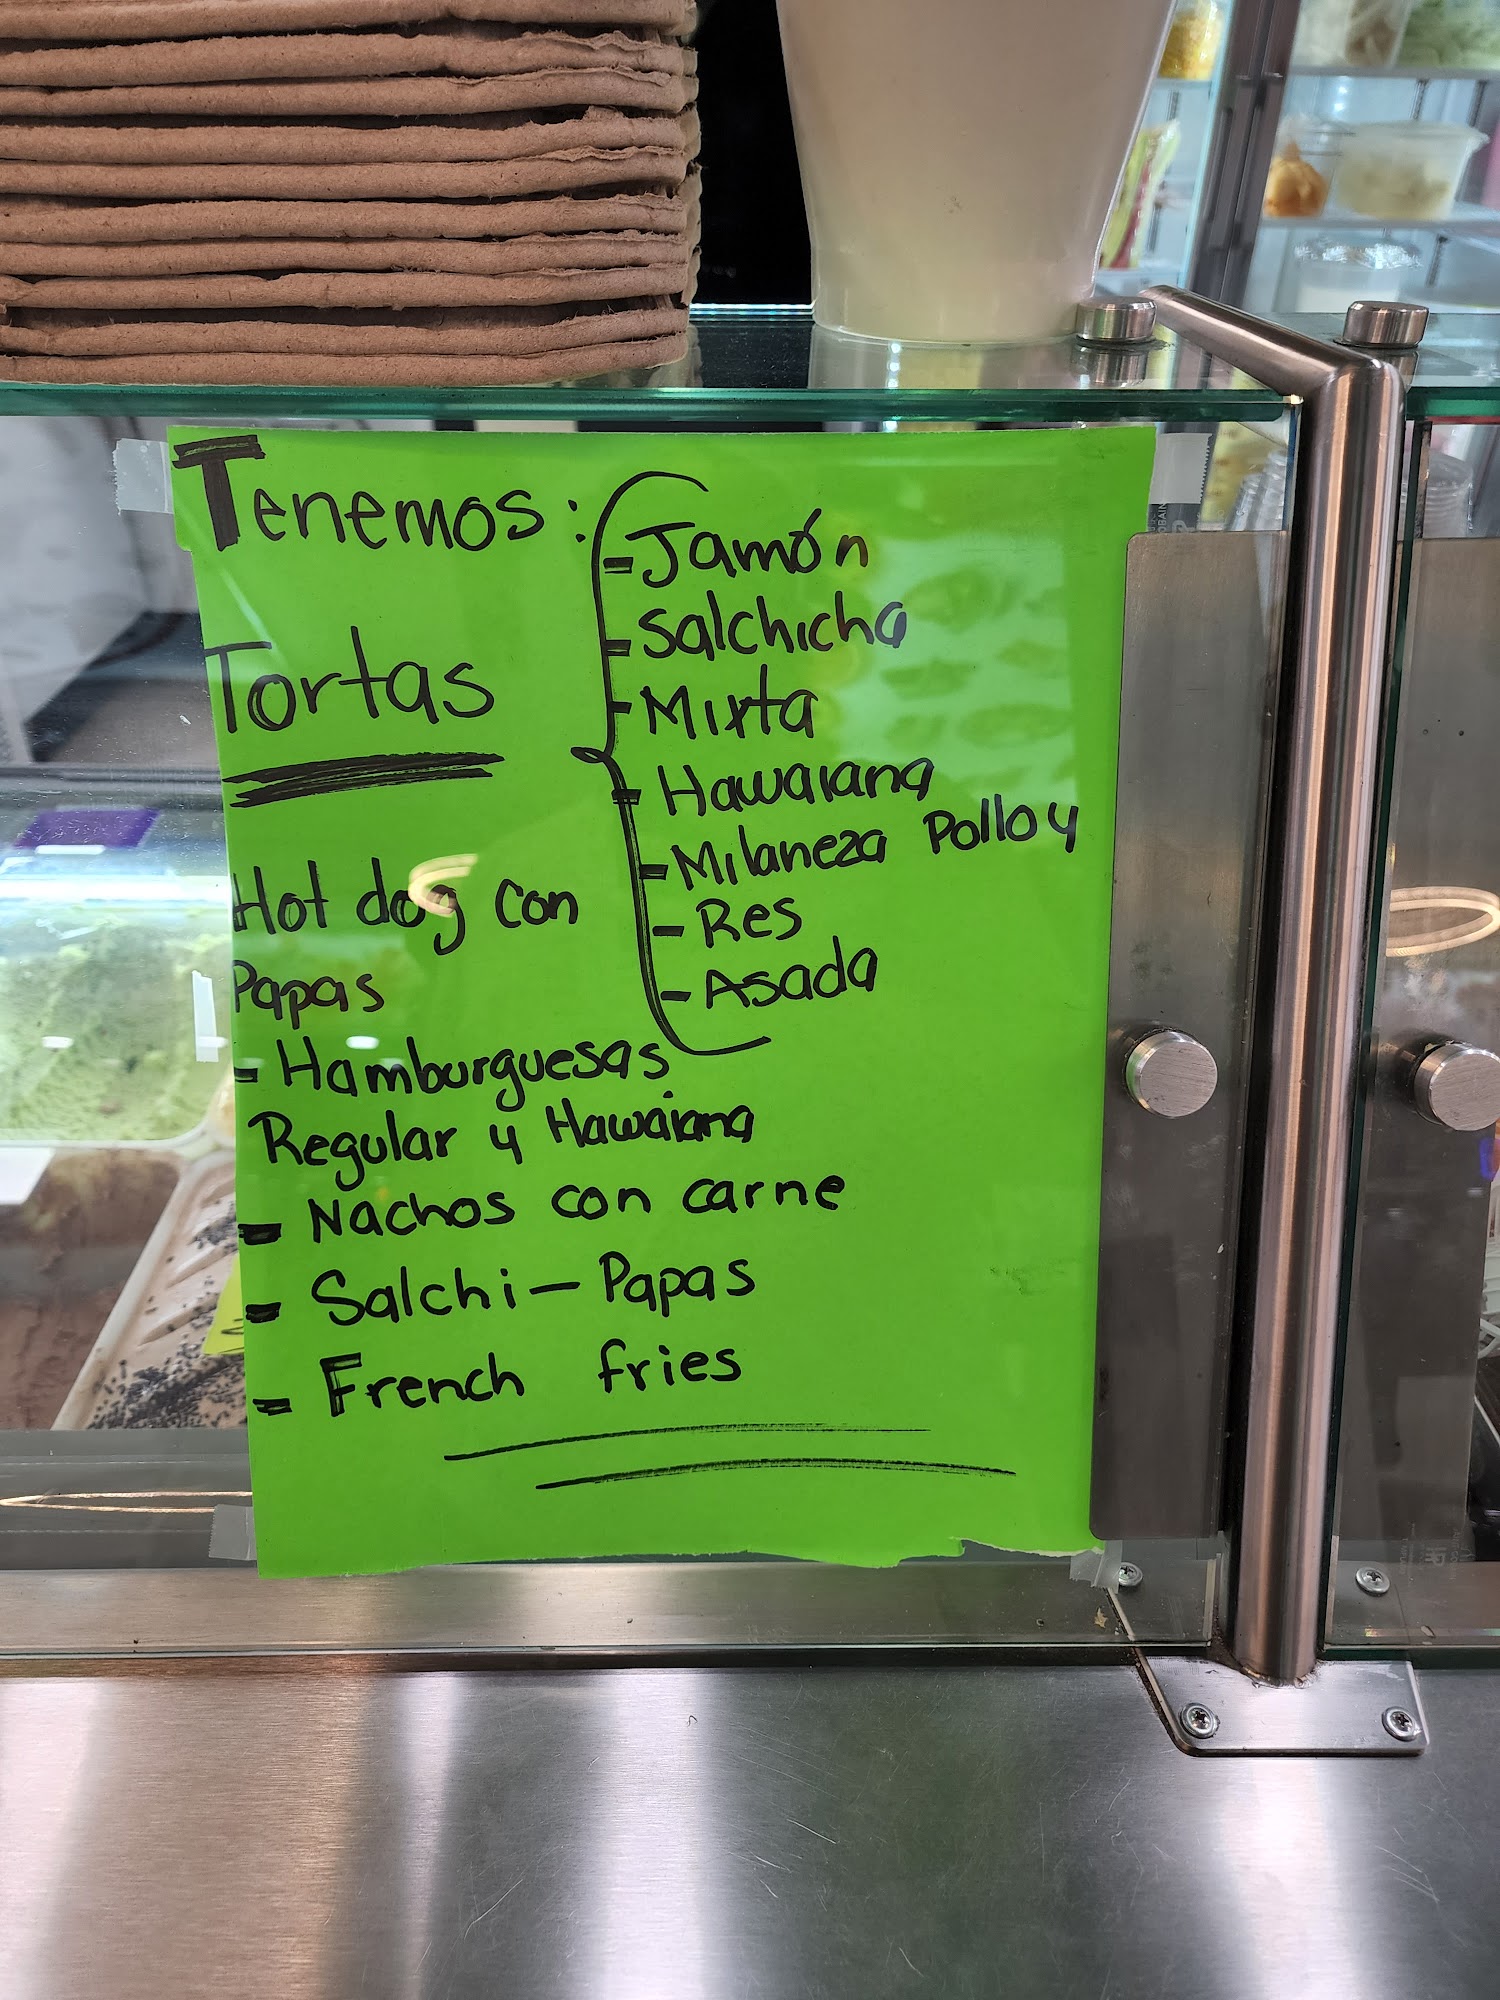 Tenemos:
Tortas
- Jamón
- Salchicha
- Mixta
- Hawaiana
- Milaneza Pollo y
- Res
- Asada
Hot dog con
Papas
- Hamburguesas
Regular y Hawaiana
- Nachos con carne
- Salchi-Papas
- French fries